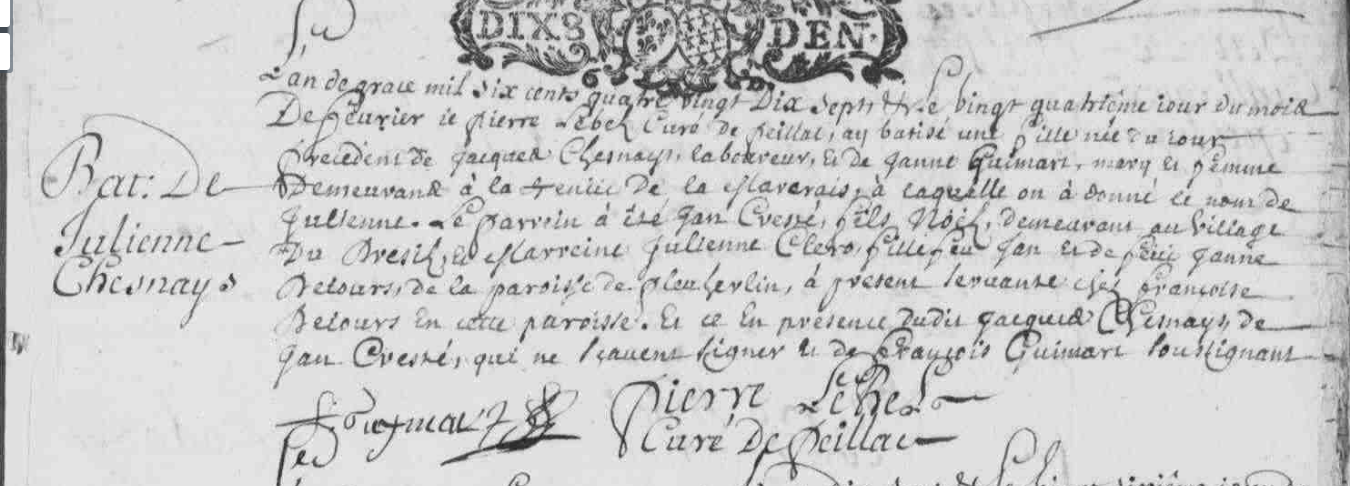 DIX8 DEN.
L'an de grace mil six cents quatre vingt Dix sept & Le vingt quatriême iour du mois
De feuvrier ie pierre Lebel Curé de peillac, ay batisé une fille née du iour
precedent de jacques Chesnays, laboureur, et de janne Guimart, mary et femme
Bat: De
Demeurans à la tenue de la Mararais, à laquelle on à donné le nom de
Julienne
julienne. Le parrein à été jan Cressé, fils Noël, demeurant au village
Chesnays
Du Bresil, et Marreine julienne Clero, fille feu jan et de feue janne
Retours, de la paroisse de pleucherlin, à present servante chés françoise
Retours En cette paroisse. Et ce En presence dudit jacques Chesnays, de
jan Cressé, qui ne scavent signer et de françois Guimart soussignant
f: guymart Pierre LeBel
Curé De Peillac